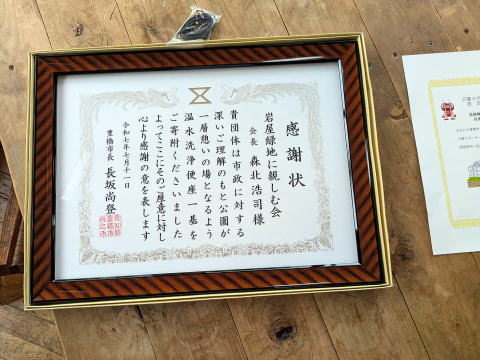 感謝状
岩屋緑地に親しむ会
会長 森北浩司様
貴団体は市政に対する
深いご理解のもと公園が
一層憩いの場となるよう
温水洗浄便座一基を
ご寄附くださいました
よってここにそのご厚意に対し
心より感謝の意を表します
令和七年七月十一日
豊橋市長 長坂尚登